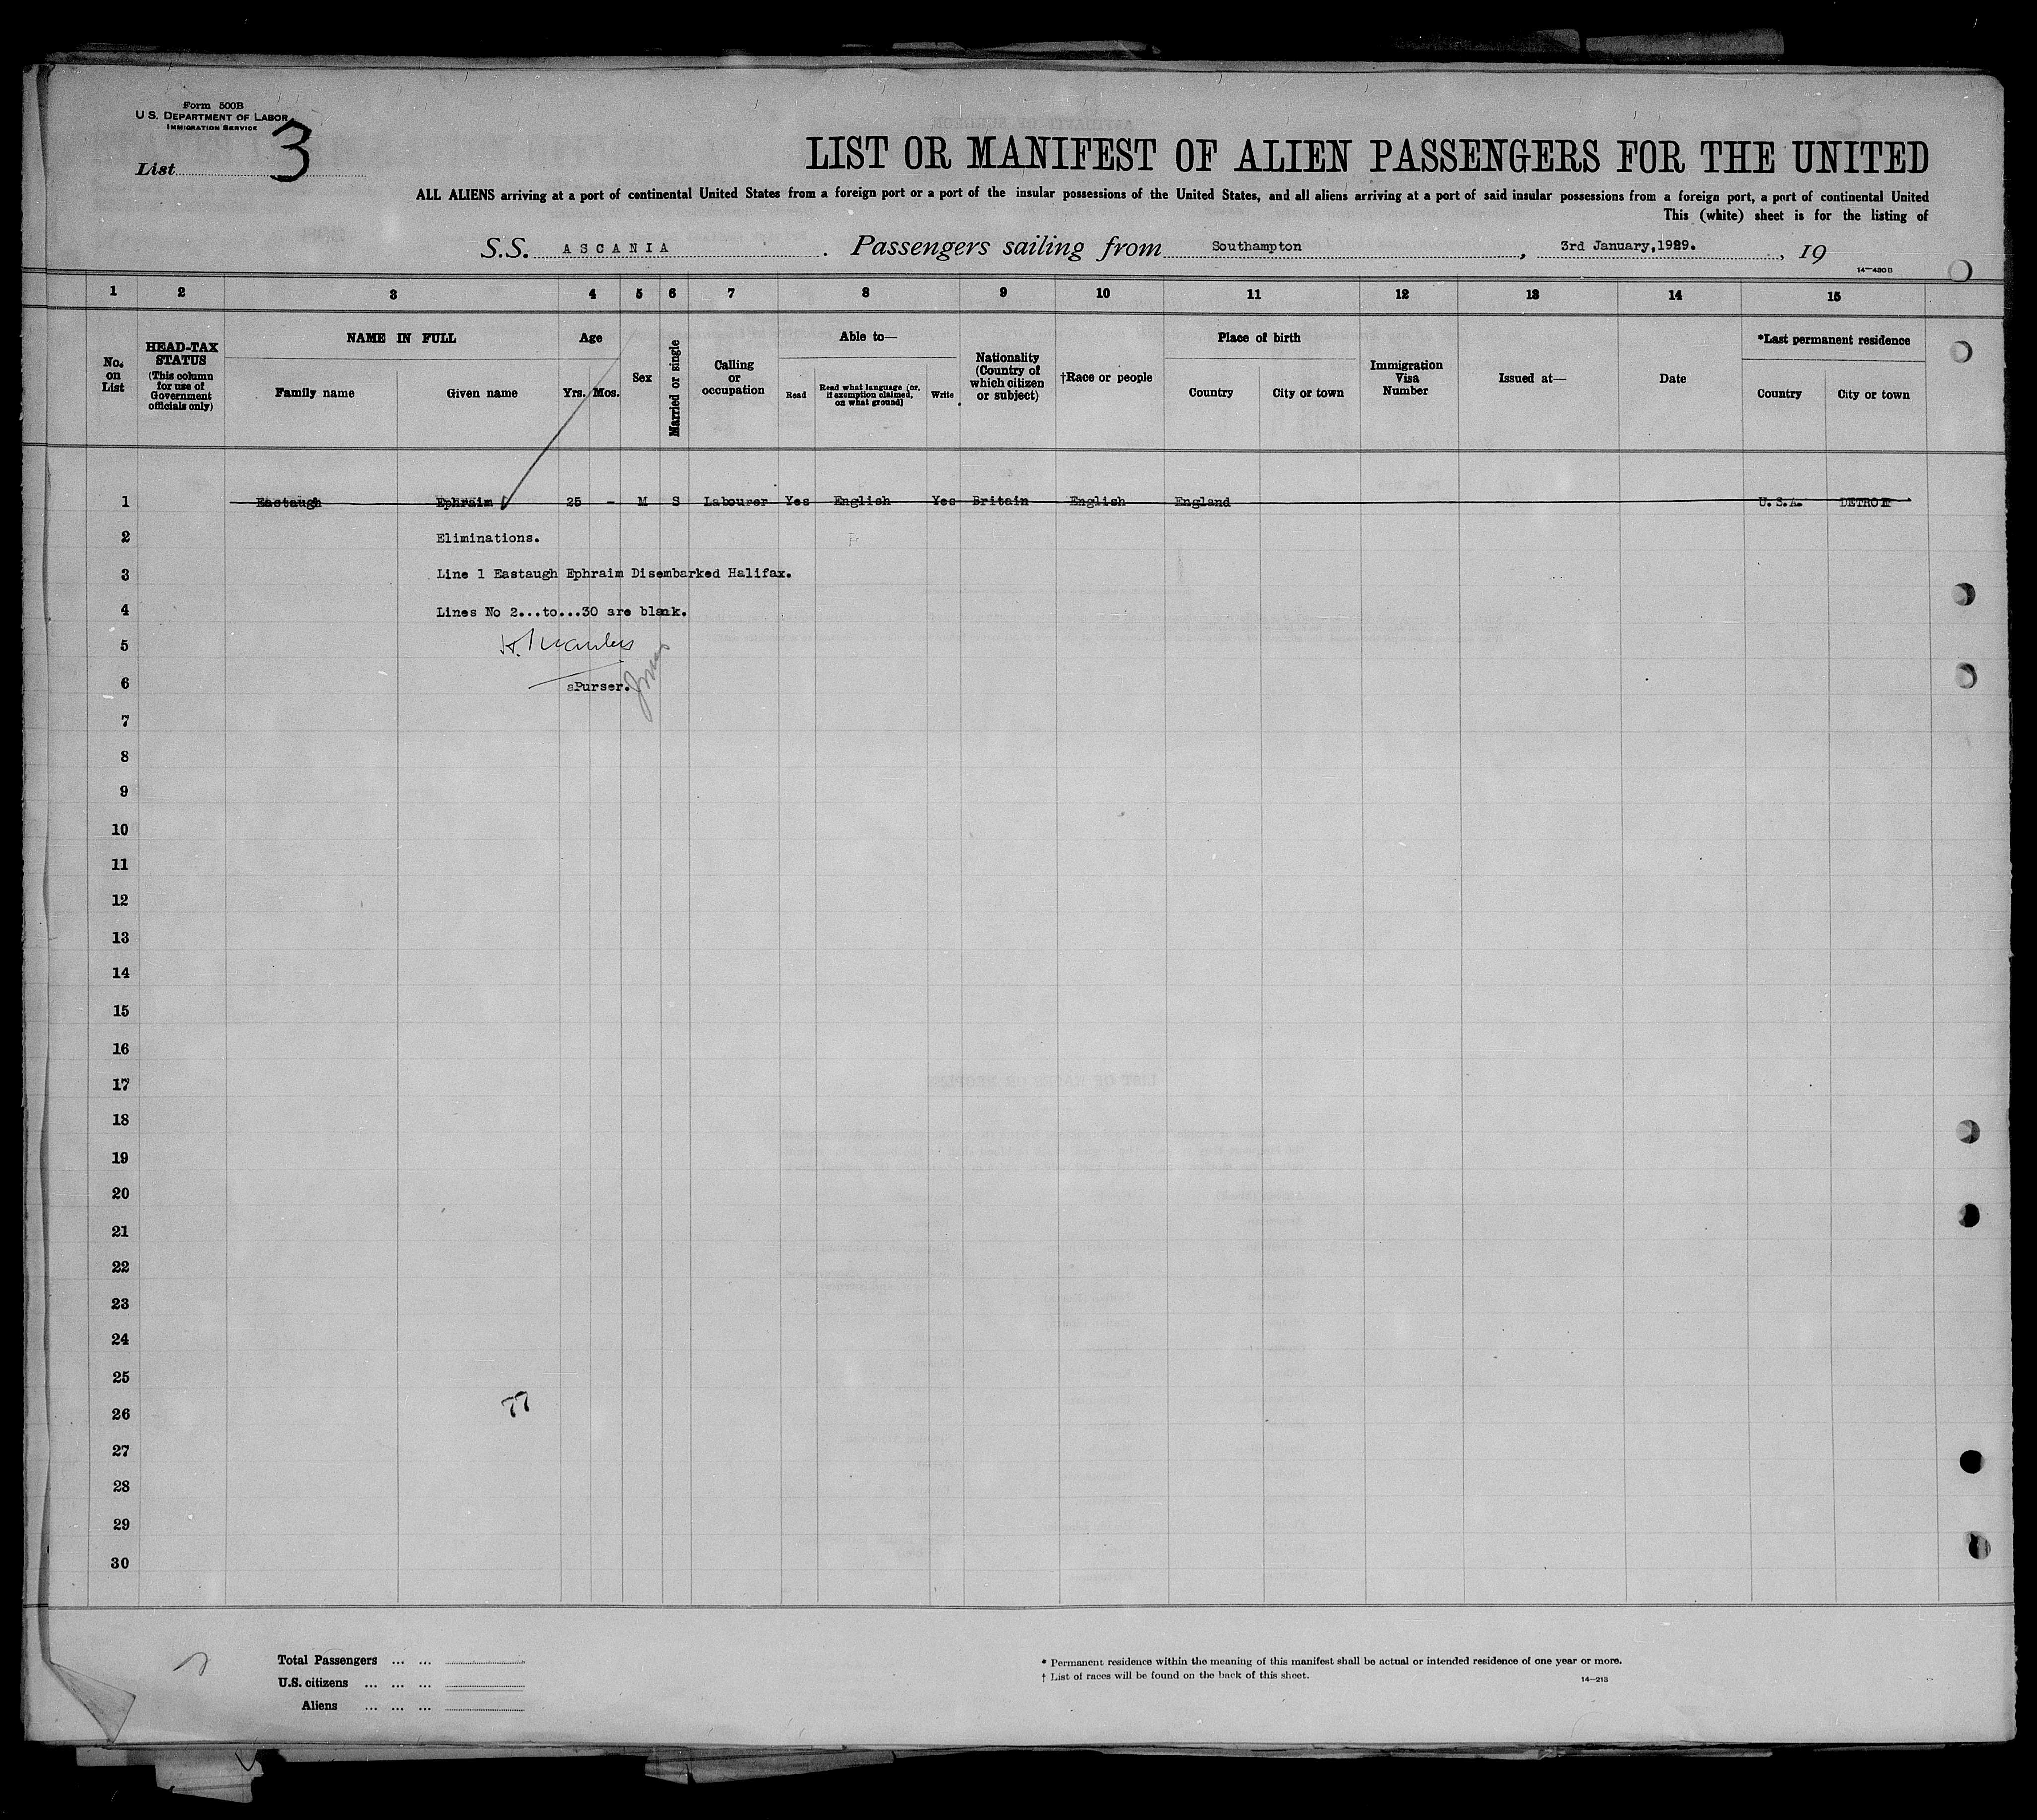 Form 500B
U.S. DEPARTMENT OF LABOR
IMMIGRATION SERVICE
List 3
LIST OR MANIFEST OF ALIEN PASSENGERS FOR THE UNITED
ALL ALIENS arriving at a port of continental United States from a foreign port or a port of the insular possessions of the United States, and all aliens arriving at a port of said insular possessions from a foreign port, a port of continental United
This (white) sheet is for the listing of
S.S. ASCANIA. Passengers sailing from Southampton, 3rd January, 1929., 19
14—430B
1 2 3 4 5 6 7 8 9 10 11 12 13 14 15
No. on List
HEAD-TAX STATUS (This column for use of Government officials only)
NAME IN FULL
Family name Given name
Age
Yrs. Mos.
Sex
Married or single
Calling or occupation
Able to—
Read Read what language (or, if exemption claimed, on what ground) Write
Nationality (Country of which citizen or subject)
†Race or people
Place of birth
Country City or town
Immigration Visa Number
Issued at—
Date
*Last permanent residence
Country City or town
1 Eastaugh Ephraim 25 - M S Labourer Yes English Yes Britain English England U.S.A. DETROIT
2 Eliminations.
3 Line 1 Eastaugh Ephraim Disembarked Halifax.
4 Lines No 2...to...30 are blank.
5
6 Purser.
7
8
9
10
11
12
13
14
15
16
17
18
19
20
21
22
23
24
25
26 77
27
28
29
30
Total Passengers ... ...
U.S. citizens ... ... ...
Aliens ... ... ...
* Permanent residence within the meaning of this manifest shall be actual or intended residence of one year or more.
† List of races will be found on the back of this sheet.
14—213